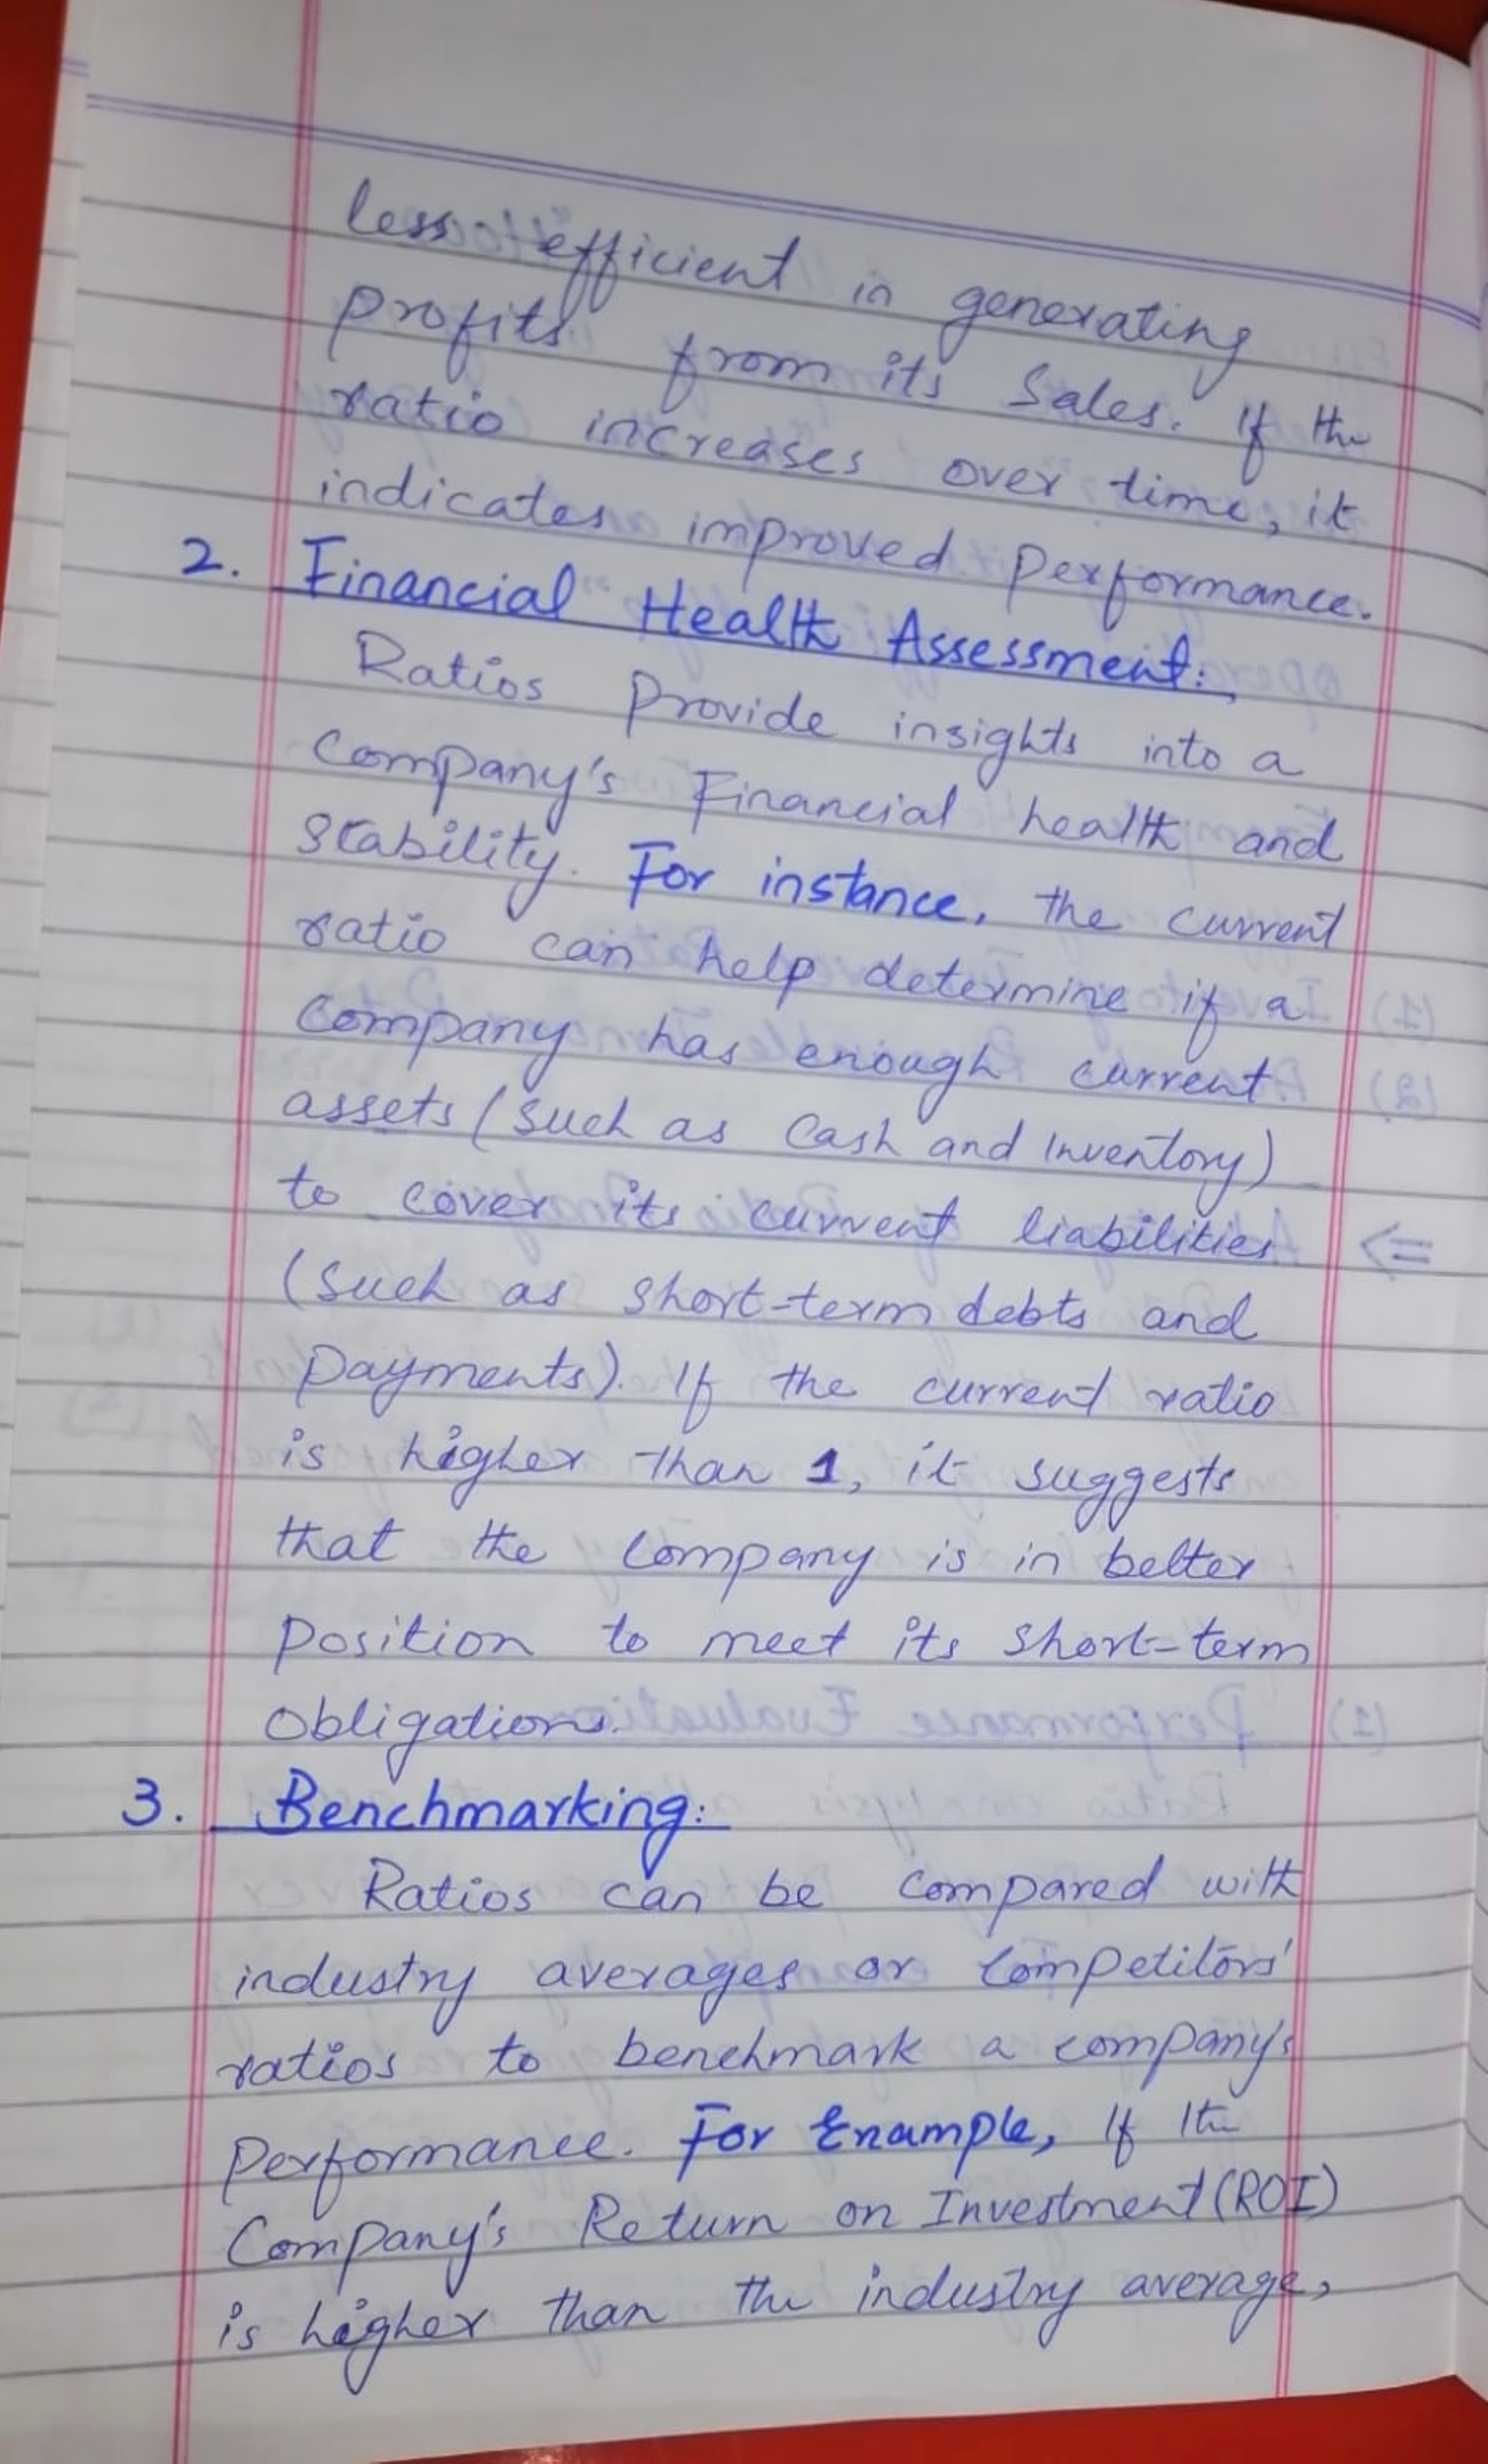 less efficient in generating
profits from its Sales. If the
ratio increases over time, it
indicates improved performance.
2. Financial Health Assessment:
Ratios provide insights into a
Company's Financial health and
Stability. For instance, the current
ratio can help determine if a
Company has enough current
assets (such as Cash and Inventory)
to cover its current liabilities
(such as short-term debts and
payments). If the current ratio
is higher than 1, it suggests
that the Company is in better
position to meet its short-term
obligations.
3. Benchmarking:
Ratios can be Compared with
industry averages or Competitors'
ratios to benchmark a company's
Performance. For Example, If the
Company's Return on Investment (ROI)
is higher than the industry average,